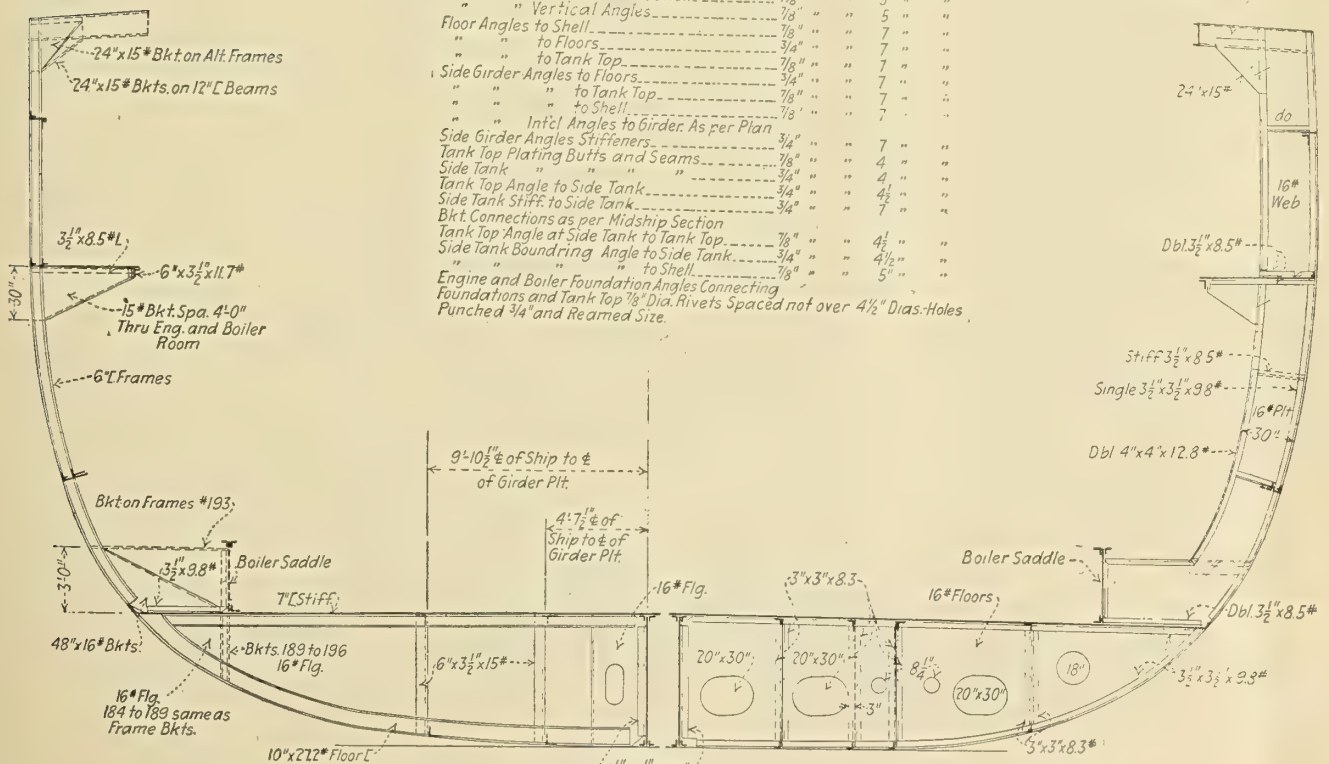 " " Vertical Angles 7/8" " " 5 " "
Floor Angles to Shell 7/8" " " 7 " "
" " to Floors 3/4" " " 7 " "
" " to Tank Top 7/8" " " 7 " "
Side Girder Angles to Floors 3/4" " " 7 " "
" " " to Tank Top 7/8" " " 7 " "
" " " to Shell 7/8" " " 7 " "
" " Int'cl Angles to Girder. As per Plan
Side Girder Angles Stiffeners 3/4" " " 7 " "
Tank Top Plating Butts and Seams 7/8" " " 4 " "
Side Tank " " " " 3/4" " " 4 " "
Tank Top Angle to Side Tank 3/4" " " 4 1/2 " "
Side Tank Stiff. to Side Tank 3/4" " " 7 " "
Bkt. Connections as per Midship Section
Tank Top Angle at Side Tank to Tank Top 7/8" " " 4 1/2 " "
Side Tank Boundring Angle to Side Tank 3/4" " " 4 1/2 " "
" " " " to Shell 7/8" " " 5" " "
Engine and Boiler Foundation Angles Connecting
Foundations and Tank Top 7/8" Dia. Rivets Spaced not over 4 1/2" Dias.-Holes
Punched 3/4" and Reamed Size.
24"x15# Bkt. on Alt. Frames
24"x15# Bkts. on 12"[ Beams
3 1/2"x8.5#L
6"x3 1/2"x11.7#
30"
15# Bkt. Spa. 4'-0"
Thru Eng. and Boiler
Room
6"[ Frames
Bkt on Frames #193
3'-0"
3 1/2"x9.8#
Boiler Saddle
7"[ Stiff
48"x16# Bkts.
16# Flg.
184 to 189 same as
Frame Bkts.
Bkts. 189 to 196
16# Flg.
10"x27.2# Floor [
6"x3 1/2"x15#
9'-10 1/2" ℄ of Ship to ℄
of Girder Plt.
4'-7 1/2" ℄ of
Ship to ℄ of
Girder Plt.
16# Flg.
24"x15#
do
16#
Web
Dbl. 3 1/2"x8.5#
Stiff 3 1/2"x8.5#
Single 3 1/2"x3 1/2"x9.8#
16# Plt
30"
Dbl 4"x4"x12.8#
Boiler Saddle
3"x3"x8.3
16# Floors
Dbl. 3 1/2"x8.5#
20"x30"
20"x30"
8 1/4"
3"
20"x30"
18"
3 1/2"x3 1/2"x9.8#
3"x3"x8.3#